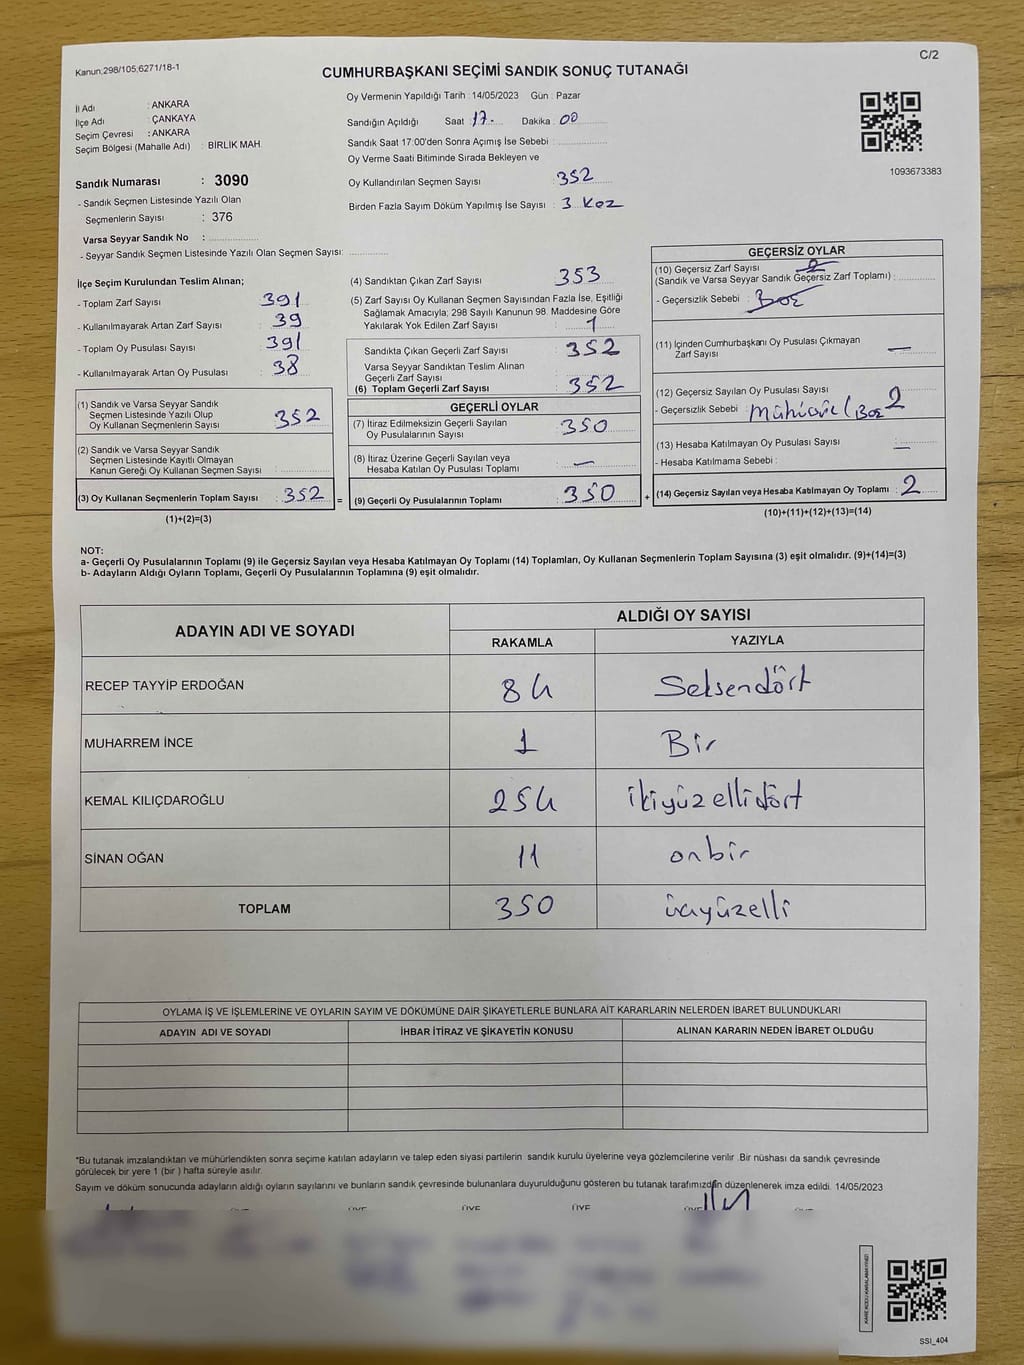 Kanun:298/105;6271/18-1
C/2
CUMHURBAŞKANI SEÇİMİ SANDIK SONUÇ TUTANAĞI
İl Adı : ANKARA
İlçe Adı : ÇANKAYA
Seçim Çevresi : ANKARA
Seçim Bölgesi (Mahalle Adı) : BİRLİK MAH.
Sandık Numarası : 3090
- Sandık Seçmen Listesinde Yazılı Olan
Seçmenlerin Sayısı : 376
Varsa Seyyar Sandık No :
- Seyyar Sandık Seçmen Listesinde Yazılı Olan Seçmen Sayısı:
Oy Vermenin Yapıldığı Tarih : 14/05/2023 Gün : Pazar
Sandığın Açıldığı Saat : 17. Dakika : 00
Sandık Saat 17:00'den Sonra Açımış İse Sebebi :
Oy Verme Saati Bitiminde Sırada Bekleyen ve
Oy Kullandırılan Seçmen Sayısı : 352
Birden Fazla Sayım Döküm Yapılmış İse Sayısı : 3 Kez
1093673383
İlçe Seçim Kurulundan Teslim Alınan;
- Toplam Zarf Sayısı : 391
- Kullanılmayarak Artan Zarf Sayısı : 39
- Toplam Oy Pusulası Sayısı : 391
- Kullanılmayarak Artan Oy Pusulası : 38
(1) Sandık ve Varsa Seyyar Sandık
Seçmen Listesinde Yazılı Olup
Oy Kullanan Seçmenlerin Sayısı : 352
(2) Sandık ve Varsa Seyyar Sandık
Seçmen Listesinde Kayıtlı Olmayan
Kanun Gereği Oy Kullanan Seçmen Sayısı :
(3) Oy Kullanan Seçmenlerin Toplam Sayısı : 352 =
(1)+(2)=(3)
(4) Sandıktan Çıkan Zarf Sayısı : 353
(5) Zarf Sayısı Oy Kullanan Seçmen Sayısından Fazla İse, Eşitliği
Sağlamak Amacıyla; 298 Sayılı Kanunun 98. Maddesine Göre
Yakılarak Yok Edilen Zarf Sayısı : 1
Sandıkta Çıkan Geçerli Zarf Sayısı : 352
Varsa Seyyar Sandıktan Teslim Alınan
Geçerli Zarf Sayısı :
(6) Toplam Geçerli Zarf Sayısı : 352
GEÇERLİ OYLAR
(7) İtiraz Edilmeksizin Geçerli Sayılan
Oy Pusulalarının Sayısı : 350
(8) İtiraz Üzerine Geçerli Sayılan veya
Hesaba Katılan Oy Pusulası Toplamı : —
(9) Geçerli Oy Pusulalarının Toplamı : 350 +
GEÇERSİZ OYLAR
(10) Geçersiz Zarf Sayısı
(Sandık ve Varsa Seyyar Sandık Geçersiz Zarf Toplamı) :
- Geçersizlik Sebebi : Boş
(11) İçinden Cumhurbaşkanı Oy Pusulası Çıkmayan
Zarf Sayısı : —
(12) Geçersiz Sayılan Oy Pusulası Sayısı : 2
- Geçersizlik Sebebi : Boş
(13) Hesaba Katılmayan Oy Pusulası Sayısı : —
- Hesaba Katılmama Sebebi :
(14) Geçersiz Sayılan veya Hesaba Katılmayan Oy Toplamı : 2
(10)+(11)+(12)+(13)=(14)
NOT:
a- Geçerli Oy Pusulalarının Toplamı (9) ile Geçersiz Sayılan veya Hesaba Katılmayan Oy Toplamı (14) Toplamları, Oy Kullanan Seçmenlerin Toplam Sayısına (3) eşit olmalıdır. (9)+(14)=(3)
b- Adayların Aldığı Oyların Toplamı, Geçerli Oy Pusulalarının Toplamına (9) eşit olmalıdır.
ADAYIN ADI VE SOYADI ALDIĞI OY SAYISI
RAKAMLA YAZIYLA
RECEP TAYYİP ERDOĞAN 84 Seksendört
MUHARREM İNCE 1 Bir
KEMAL KILIÇDAROĞLU 254 ikiyüzellidört
SİNAN OĞAN 11 onbir
TOPLAM 350 üçyüzelli
OYLAMA İŞ VE İŞLEMLERİNE VE OYLARIN SAYIM VE DÖKÜMÜNE DAİR ŞİKAYETLERLE BUNLARA AİT KARARLARIN NELERDEN İBARET BULUNDUKLARI
ADAYIN ADI VE SOYADI İHBAR İTİRAZ VE ŞİKAYETİN KONUSU ALINAN KARARIN NEDEN İBARET OLDUĞU
*Bu tutanak imzalandıktan ve mühürlendikten sonra seçime katılan adayların ve talep eden siyasi partilerin sandık kurulu üyelerine veya gözlemcilerine verilir .Bir nüshası da sandık çevresinde
görülecek bir yere 1 (bir ) hafta süreyle asılır.
Sayım ve döküm sonucunda adayların aldığı oyların sayılarını ve bunların sandık çevresinde bulunanlara duyurulduğunu gösteren bu tutanak tarafımızdan düzenlenerek imza edildi. 14/05/2023
ÜYE ÜYE ÜYE ÜYE ÜYE
SSI_404